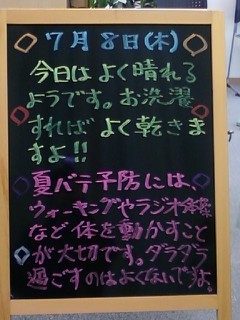 7月8日(木)
今日は よく晴れる
ようです。お洗濯
すれば よく乾きま
すよ!!
夏バテ予防には、
ウォーキングやラジオ体操
など 体を動かすこと
が大切です。ダラダラ
過ごすのはよくないですよ。